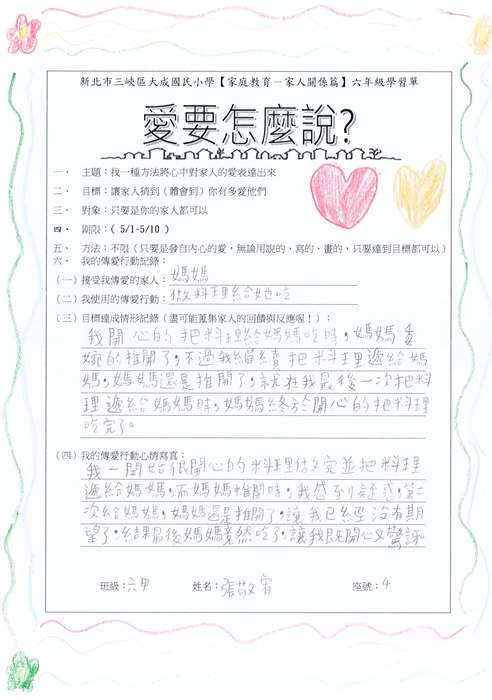 新北市三峽區大成國民小學【家庭教育－家人關係篇】六年級學習單
愛要怎麼說?
一、 主題：找一種方法將心中對家人的愛表達出來
二、 目標：讓家人猜到（體會到）你有多愛他們
三、 對象：只要是你的家人都可以
四、 期限：（5/1~5/10）
五、 方法：不限（只要是發自內心的愛，無論用說的、寫的、畫的，只要達到目標都可以）
六、 我的傳愛行動記錄：
（一）接受我傳愛的家人：媽媽
（二）我使用的傳愛行動：做料理給她吃
（三）目標達成情形記錄（盡可能蒐集家人的回饋與反應喔！）：
我開心的把料理給媽媽吃時，媽媽委
婉的推開了，不過我繼續把料理遞給媽
媽，媽媽還是推開了，就在我最後一次把料
理遞給媽媽時，媽媽終於開心的把料理
吃完了。
（四）我的傳愛行動心情寫真：
我一開始很開心的料理做完並把料理
遞給媽媽，而媽媽推開時，我感到疑惑，第二
次給媽媽，媽媽還是推開了，讓我已經沒有期
望了，結果最後媽媽竟然吃了，讓我既開心又驚訝
班級：六甲 姓名：張敬宥 座號：4